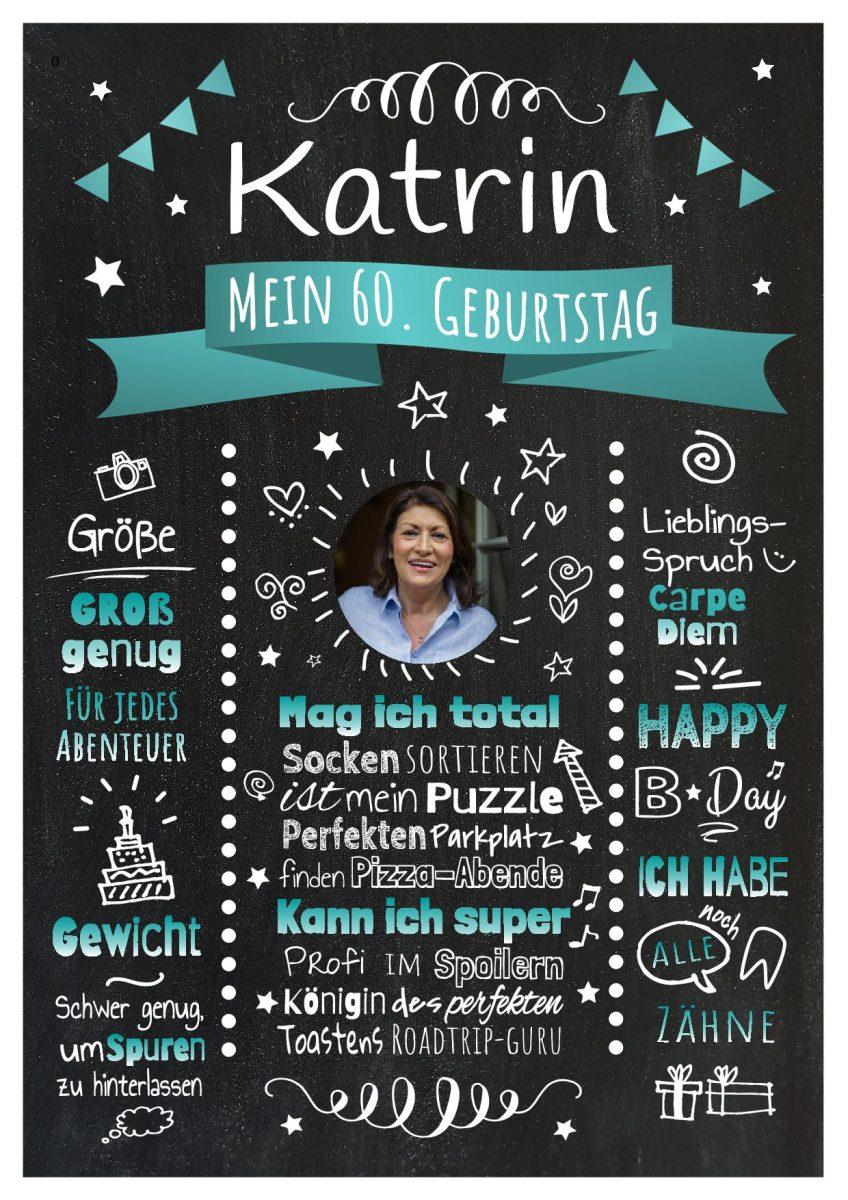 0
Katrin
MEIN 60. GEBURTSTAG
Größe
GROß
genug
FÜR JEDES
ABENTEUER
Gewicht
Schwer genug,
um Spuren
zu hinterlassen
Mag ich total
Socken SORTIEREN
ist mein Puzzle
Perfekten Parkplatz
finden Pizza-Abende
Kann ich super
Profi IM Spoilern
Königin des perfekten
Toastens ROADTRIP-GURU
Lieblings-
Spruch
Carpe
Diem
HAPPY
B Day
ICH HABE
noch
ALLE
ZÄHNE